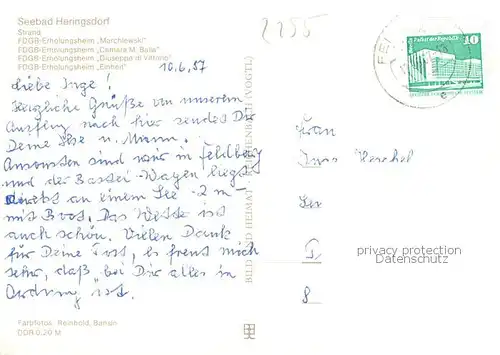 Seebad Heringsdorf
Strand
FDGB-Erholungsheim „Marchlewski"
FDGB-Erholungsheim „Camara M. Balla"
FDGB-Erholungsheim „Giuseppe di Vittorio"
FDGB-Erholungsheim „Einheit"
10.6.87
Liebe Inge!
Herzliche Grüße von unserem
Ausflug nach hier sendet Dir
Deine Ilse u. Mann.
Ansonsten sind wir in Feldberg
und der Bastei-Wagen liegt
direkt an einem See - 2 m -
mit Boot. Das Wetter ist
auch schön. Vielen Dank
für Deine Post, es freut mich
sehr, daß bei Dir alles in
Ordnung ist.
Farbfotos: Reinhold, Bansin
DDR 0,20 M
BILD UND HEIMAT REICHENBACH (VOGTL)
2255
Palast der Republik
10
Frau
privacy protection
Datenschutz